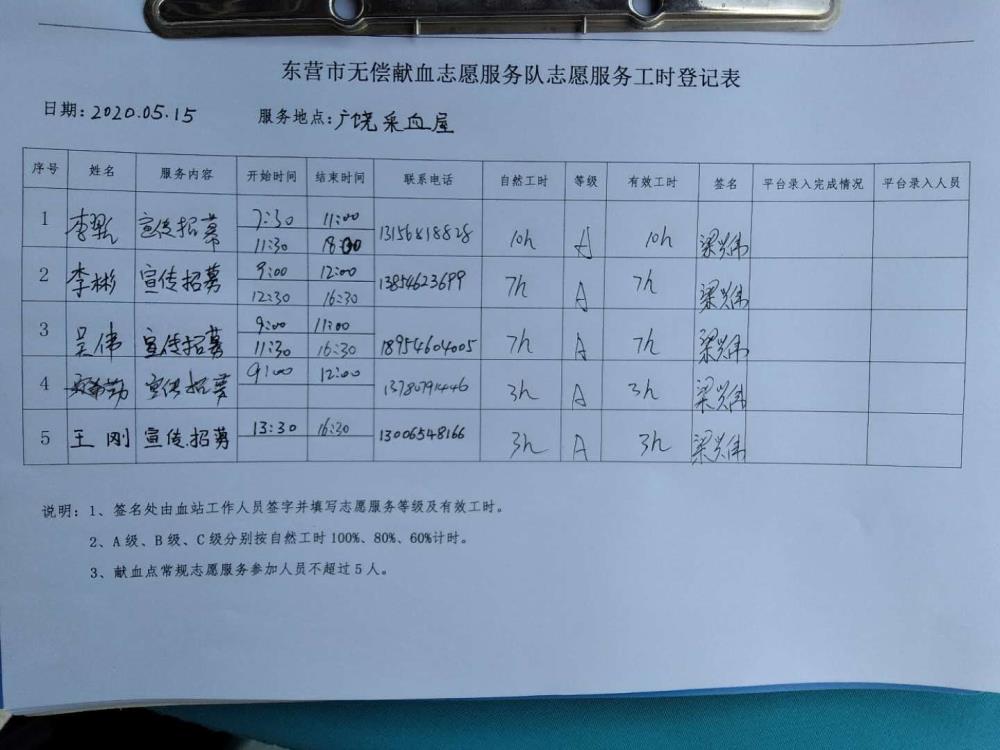 东营市无偿献血志愿服务队志愿服务工时登记表
日期:2020.05.15 服务地点:广饶采血屋
序号 姓名 服务内容 开始时间 结束时间 联系电话 自然工时 等级 有效工时 签名 平台录入完成情况 平台录入人员
1 李 宣传招募 7:30 11:00 13156818828 10h A 10h 梁兴伟
11:30 18:00
2 李彬 宣传招募 9:00 12:00 13854623699 7h A 7h 梁兴伟
12:30 16:30
3 吴伟 宣传招募 9:00 11:00 18954604005 7h A 7h 梁兴伟
11:30 16:30
4 宣传招募 9:00 12:00 3h A 3h 梁兴伟
5 王刚 宣传.招募 13:30 16:30 13006548166 3h A 3h 梁兴伟
说明:1、签名处由血站工作人员签字并填写志愿服务等级及有效工时。
2、A级、B级、C级分别按自然工时100%、80%、60%计时。
3、献血点常规志愿服务参加人员不超过5人。